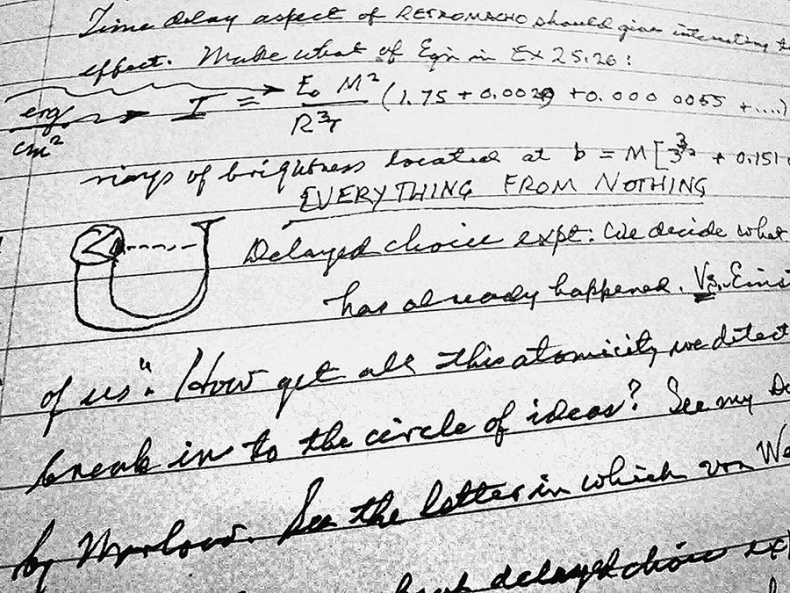 Time delay aspect of RETROMACHO should give interesting
effect. Make what of Eqn in Ex 25.26:
erg/cm² → I = E₀ M²/R³τ (1.75 + 0.0029 + 0.0000055 + ....)
rings of brightness located at b = M[3^{3/2} + 0.151
EVERYTHING FROM NOTHING
Delayed choice expt: We decide what
has already happened. Vs. Einst
of us". How get all this atomicity we detect
break in to the circle of ideas? See my
by Marlow. See the letter in which von We
delayed choice ex